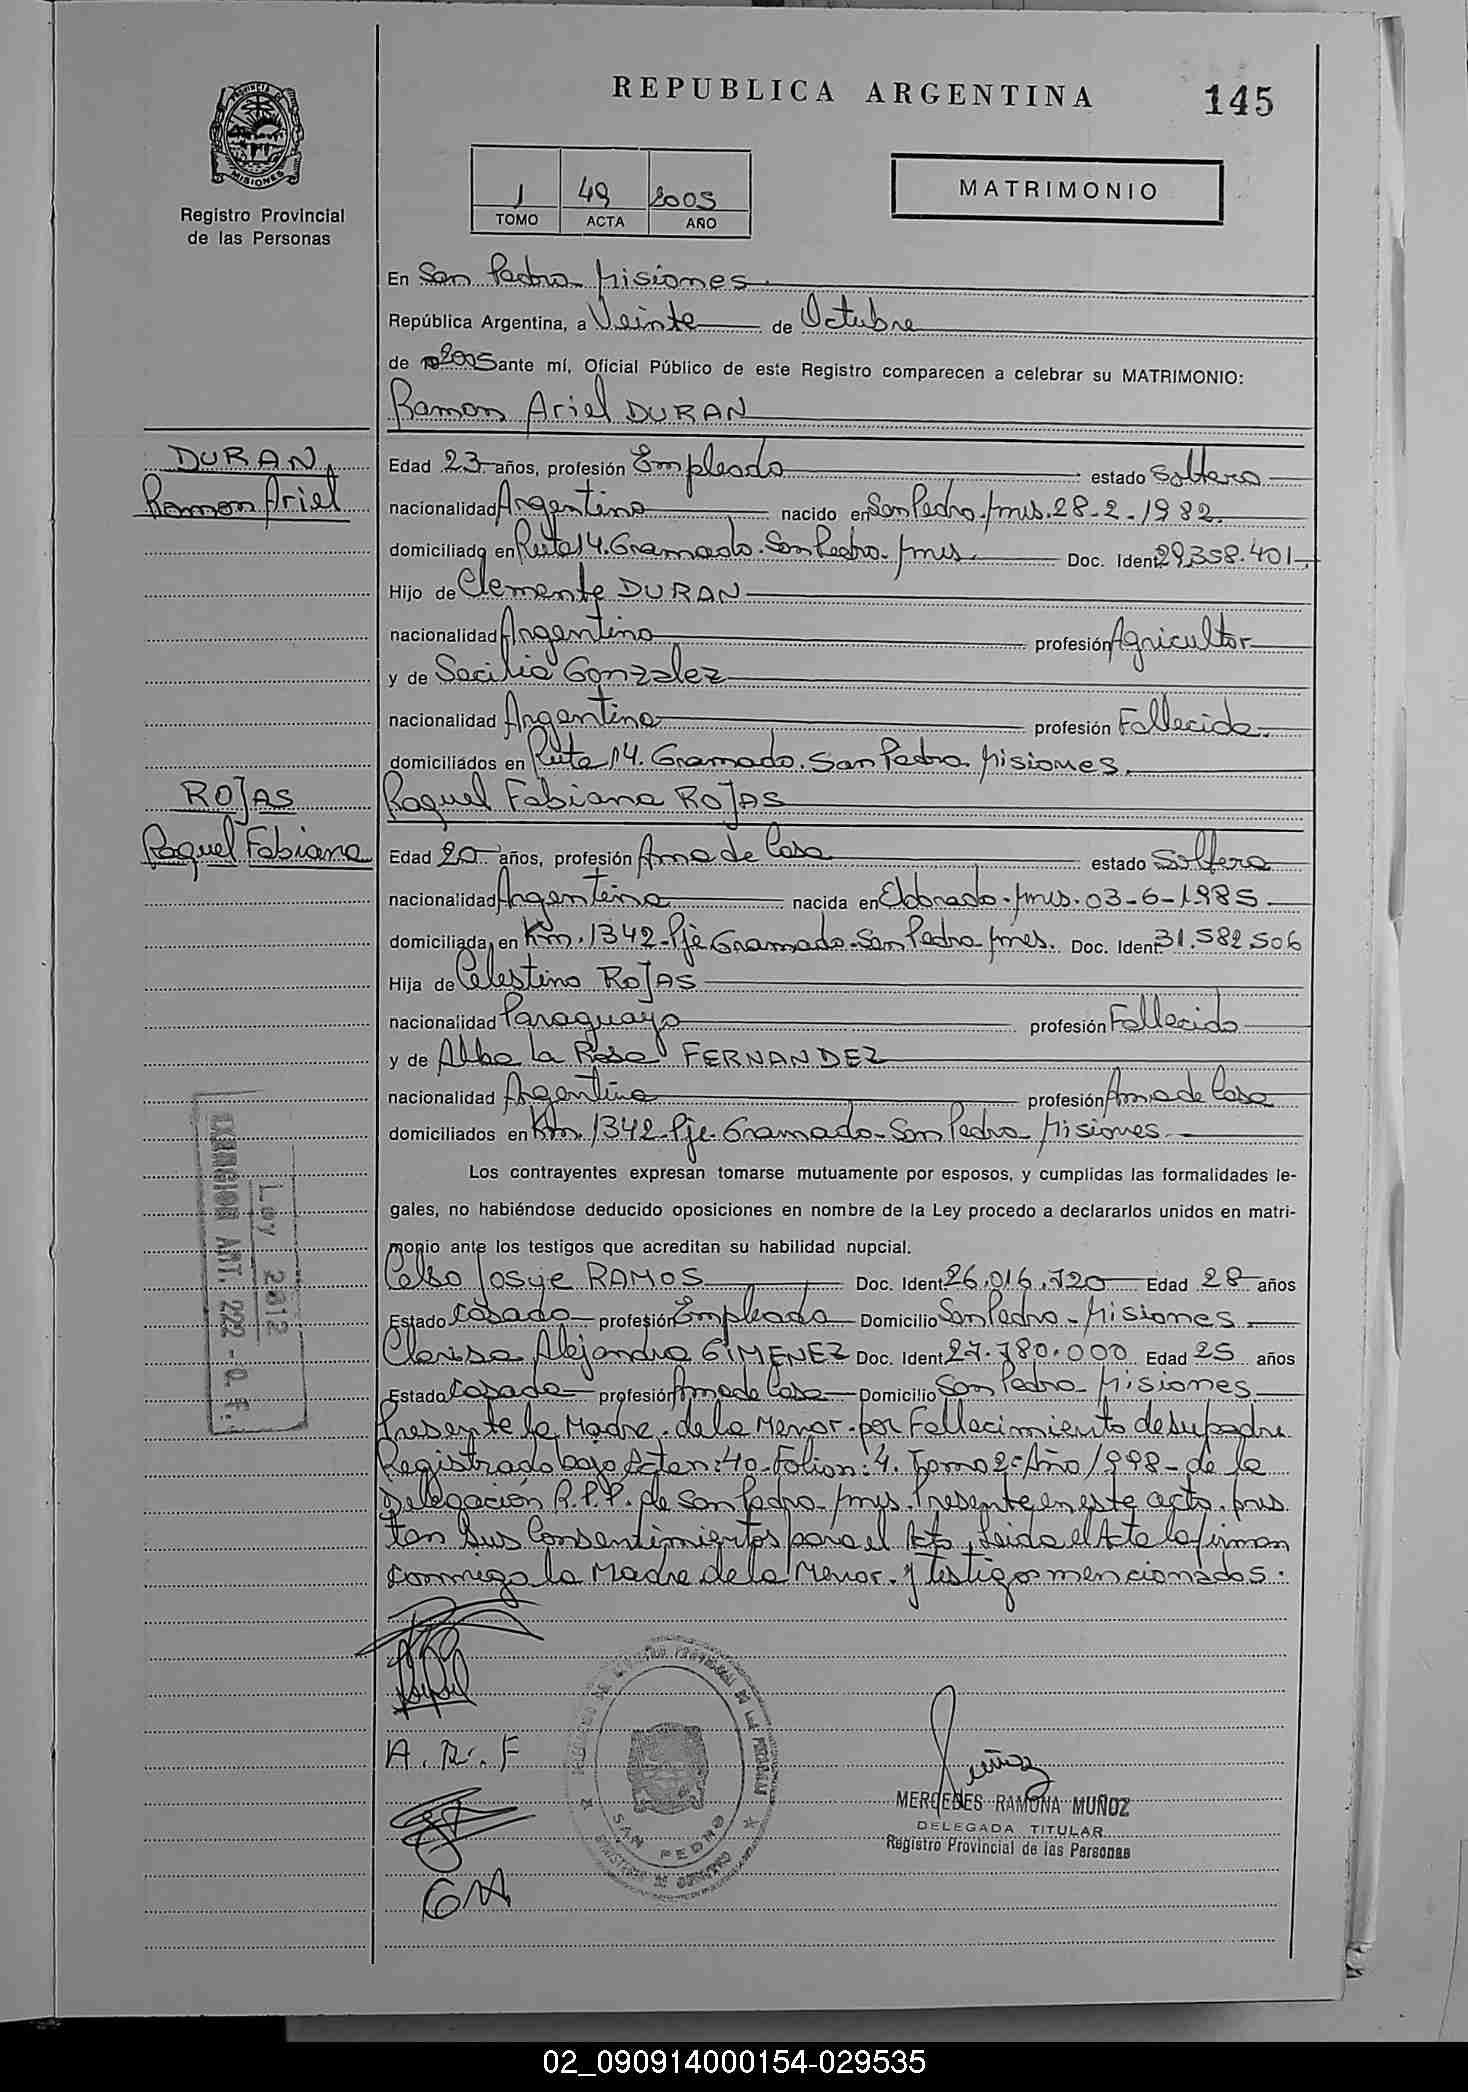 REPUBLICA ARGENTINA
145
PROVINCIA DE
MISIONES
Registro Provincial
de las Personas
1 49 2005
TOMO ACTA AÑO
MATRIMONIO
En San Pedro Misiones
República Argentina, a Veinte de Octubre
de 2005 ante mí, Oficial Público de este Registro comparecen a celebrar su MATRIMONIO:
Ramon Ariel DURAN
DURAN,
Ramon Ariel
Edad 23 años, profesión Empleado estado Soltero
nacionalidad Argentino nacido en San Pedro. Mnes. 28-2-1982.
domiciliado en Ruta 14. Gramado. San Pedro. Mnes. Doc. Ident. 29.358.401
Hijo de Clemente DURAN
nacionalidad Argentino profesión Agricultor
y de Secilia Gonzalez
nacionalidad Argentina profesión Fallecida.
domiciliados en Ruta 14. Gramado. San Pedro Misiones.
ROJAS
Raquel Fabiana
Raquel Fabiana ROJAS
Edad 20 años, profesión Ama de Casa estado Soltera
nacionalidad Argentina nacida en Eldorado. Mnes. 03-6-1985
domiciliada en Km. 1342-Pje Gramado-San Pedro Mnes. Doc. Ident. 31.582.506
Hija de Celestino ROJAS
nacionalidad Paraguayo profesión Fallecido
y de Alba La Rosa FERNANDEZ
nacionalidad Argentina profesión Ama de Casa
domiciliados en Km. 1342-Pje. Gramado-San Pedro Misiones.
Los contrayentes expresan tomarse mutuamente por esposos, y cumplidas las formalidades le-
gales, no habiéndose deducido oposiciones en nombre de la Ley procedo a declararlos unidos en matri-
monio ante los testigos que acreditan su habilidad nupcial.
Celso Josye RAMOS Doc. Ident. 26.016.720 Edad 28 años
Estado Casado profesión Empleado Domicilio San Pedro-Misiones
Clarisa Alejandra GIMENEZ Doc. Ident. 27.780.000 Edad 25 años
Estado Casada profesión Ama de Casa Domicilio San Pedro Misiones
Presente la Madre. de la Menor. por Fallecimiento de su padre
Registrado bajo Acta n: 40-Folio n: 4. Tomo 2-Año 1998-de la
Delegación R.P.P. de San Pedro. Mnes. Presente en este acto. pres
tan Sus Consentimientos para el Acto. Leida el Acta la firman
conmigo la Madre de la Menor. y testigos mencionados.
EXENCION ART. 222 - O. F.
Ley 2812
A. R. F
SAN PEDRO
MERCEDES RAMONA MUÑOZ
DELEGADA TITULAR
Registro Provincial de las Personas
GA
02_090914000154-029535